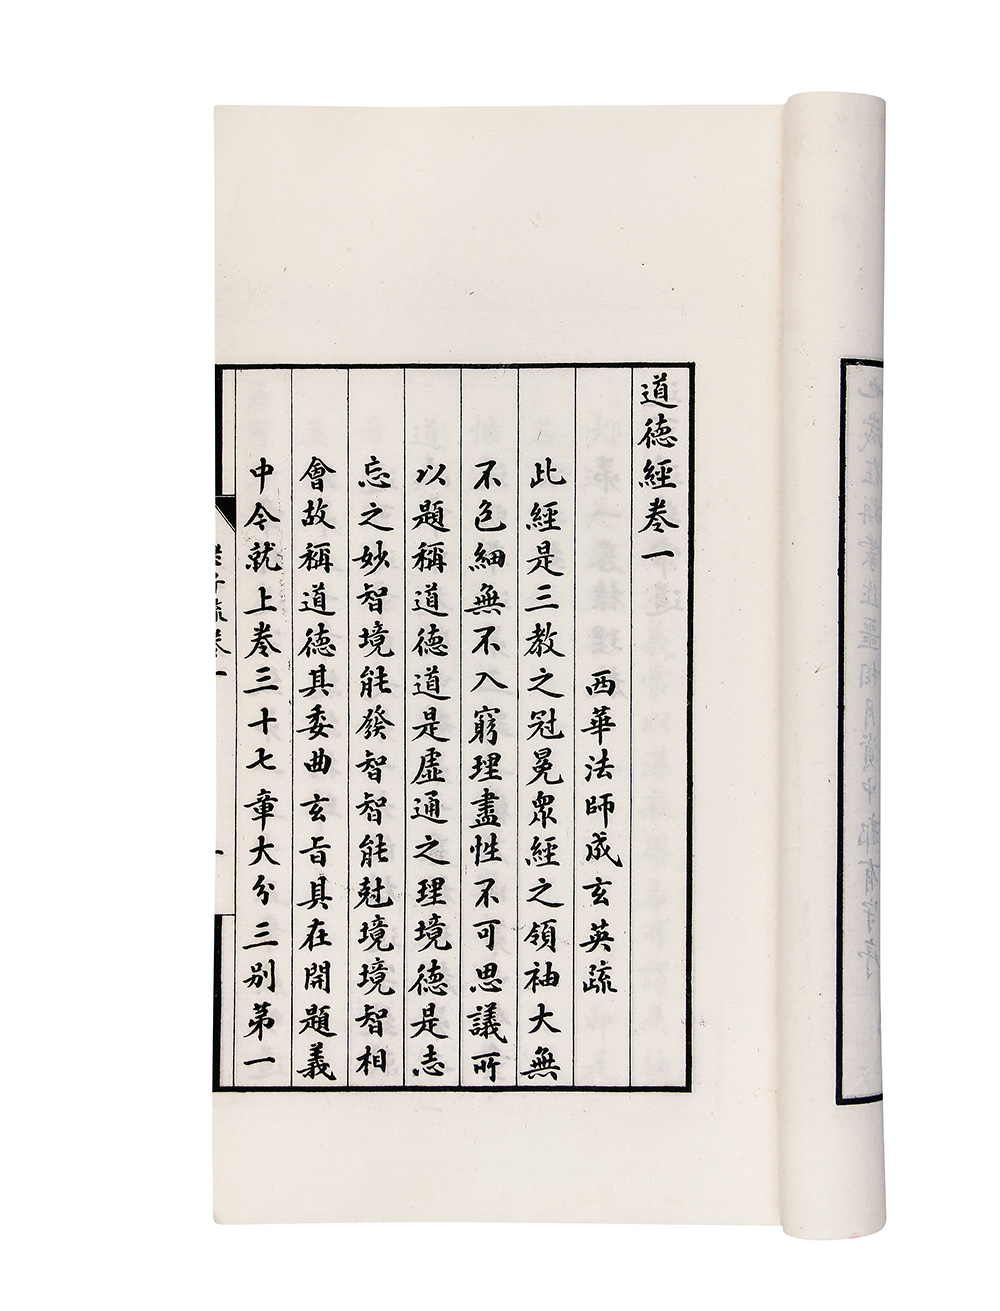 道德經卷一
西華法師成玄英疏
此經是三教之冠冕衆經之領袖大無
不色細無不入窮理盡性不可思議所
以題稱道德道是虛通之理境德是志
忘之妙智境能發智智能尅境境智相
會故稱道德其委曲玄旨具在開題義
中今就上卷三十七章大分三別第一